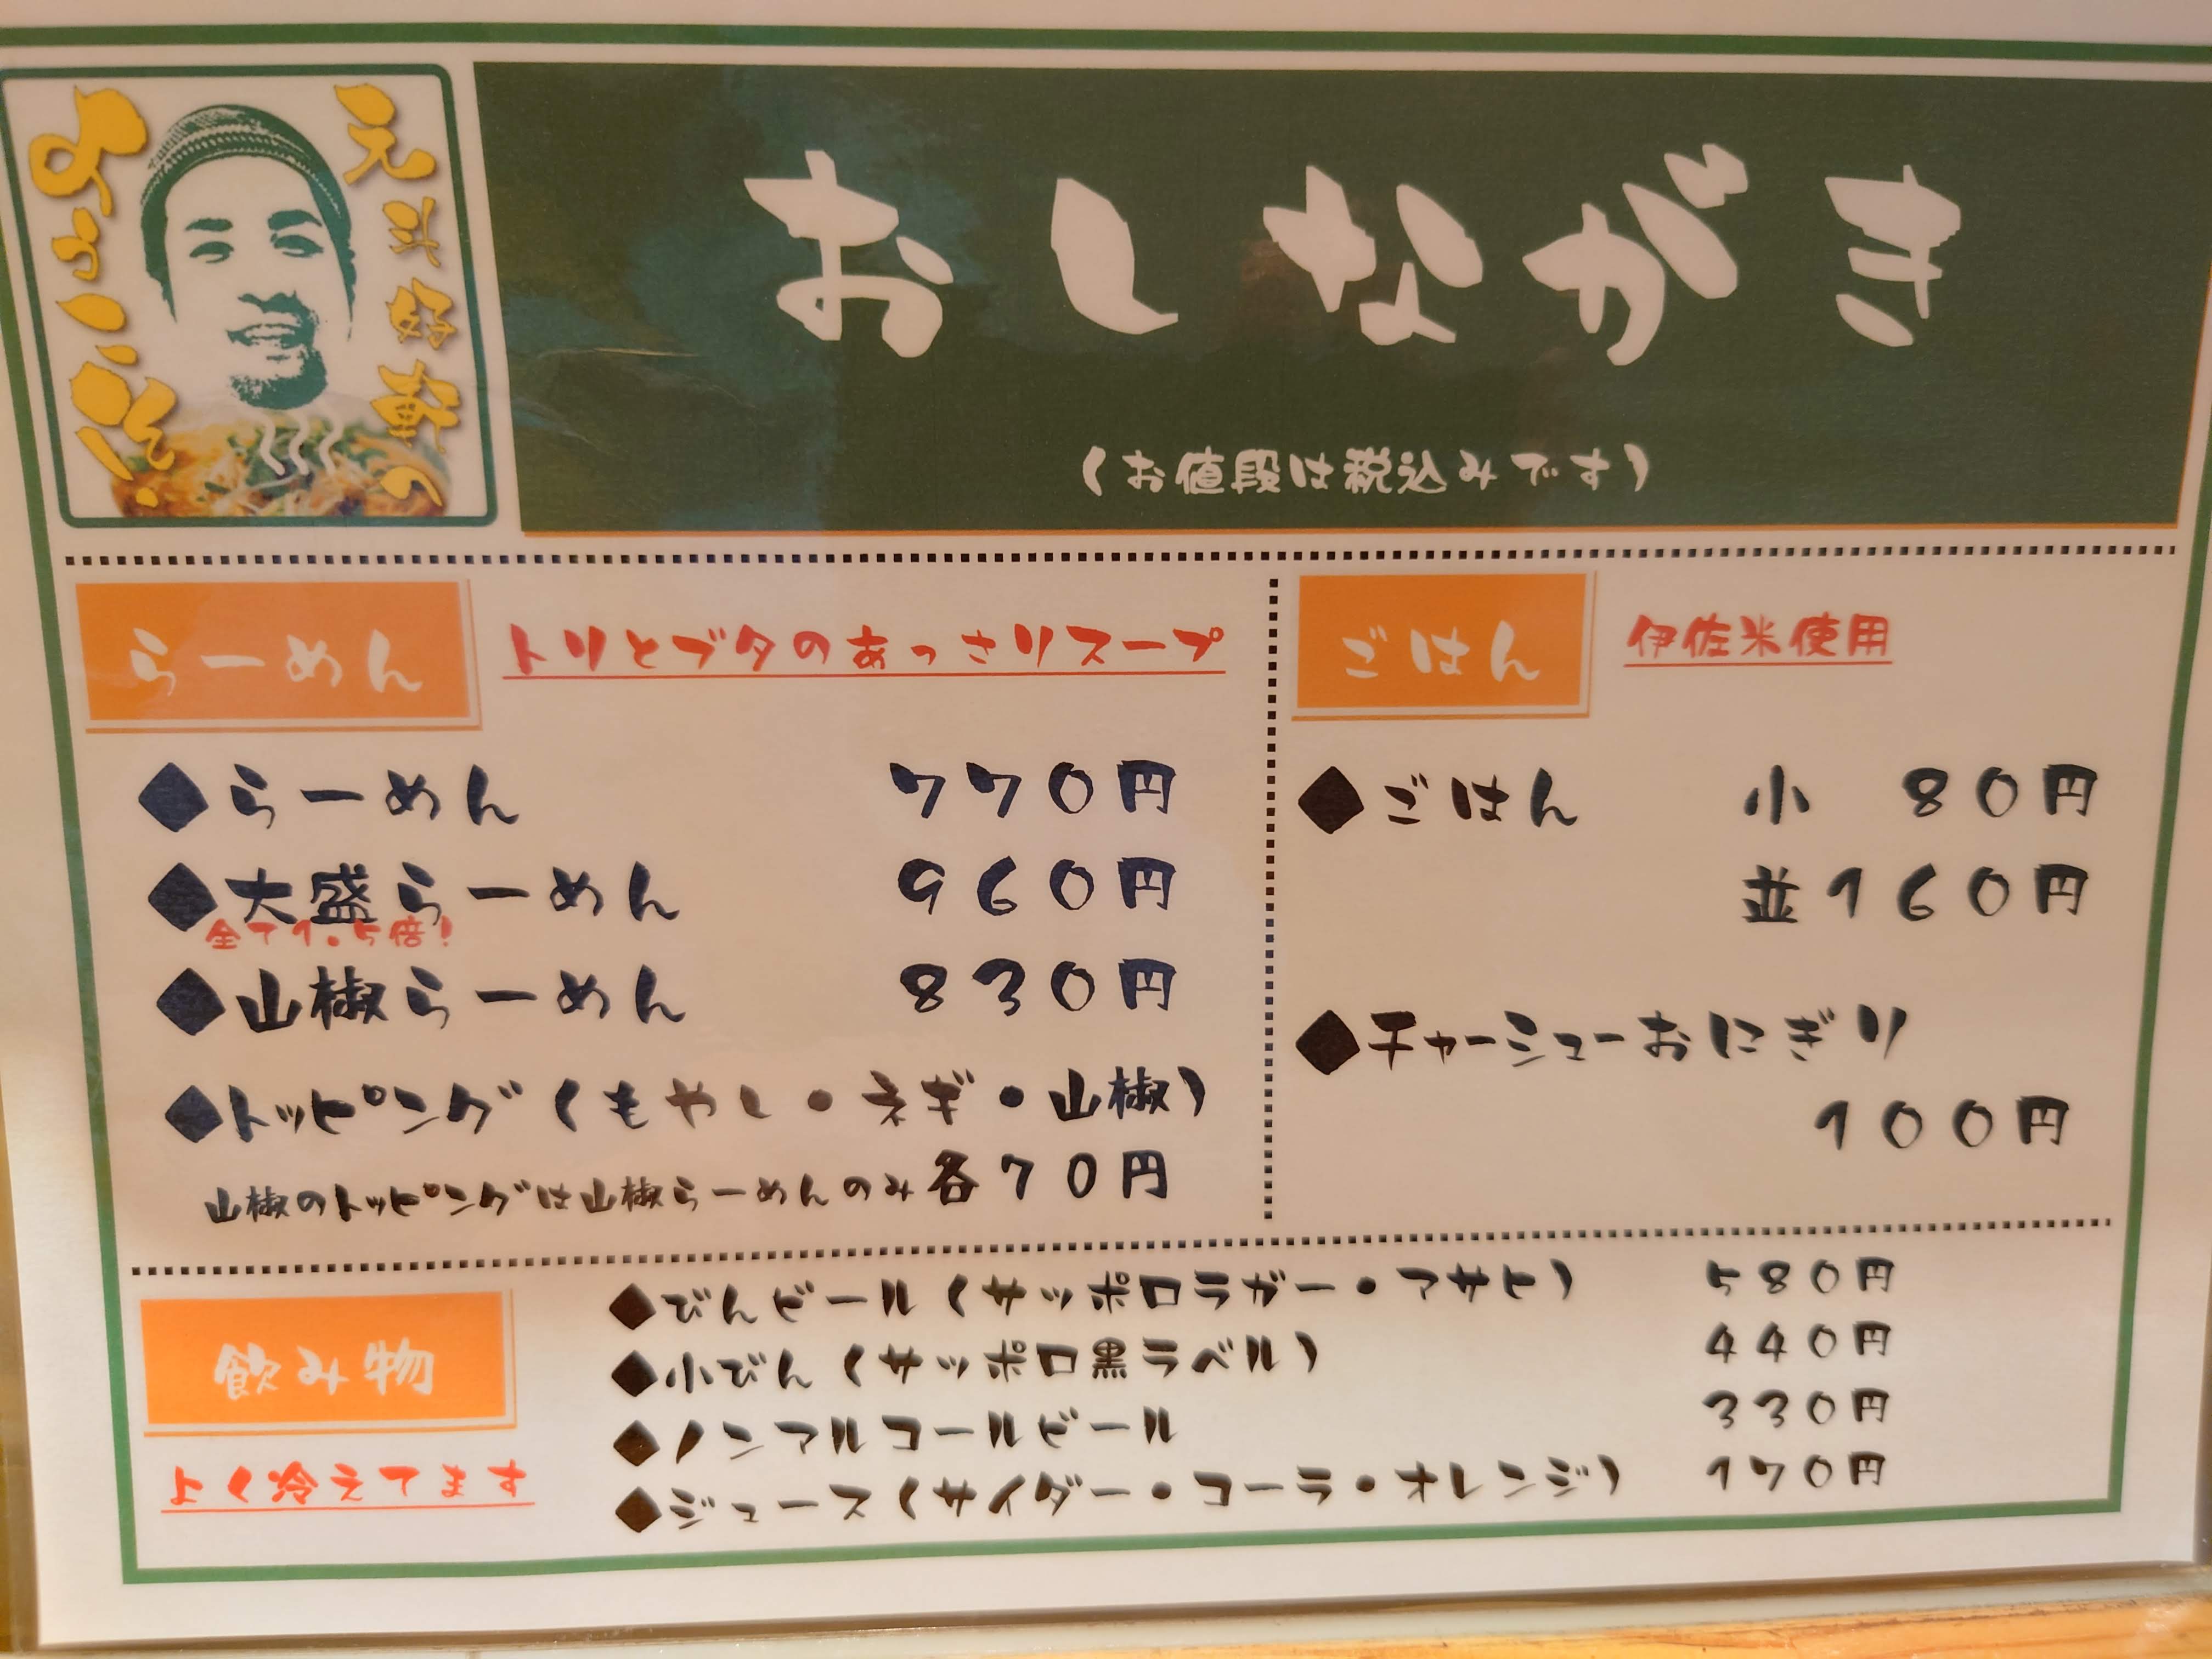 元斗好軒の
ようこそ!
おしながき
(お値段は税込みです)
らーめん
トリとブタのあっさりスープ
◆らーめん 770円
◆大盛らーめん 960円
全て1.5倍!
◆山椒らーめん 830円
◆トッピング(もやし・ネギ・山椒)
山椒のトッピングは山椒らーめんのみ 各70円
ごはん
伊佐米使用
◆ごはん 小 80円
並160円
◆チャーシューおにぎり
100円
飲み物
よく冷えてます
◆びんビール(サッポロラガー・アサヒ) 580円
◆小びん(サッポロ黒ラベル) 440円
◆ノンアルコールビール 330円
◆ジュース(サイダー・コーラ・オレンジ) 170円